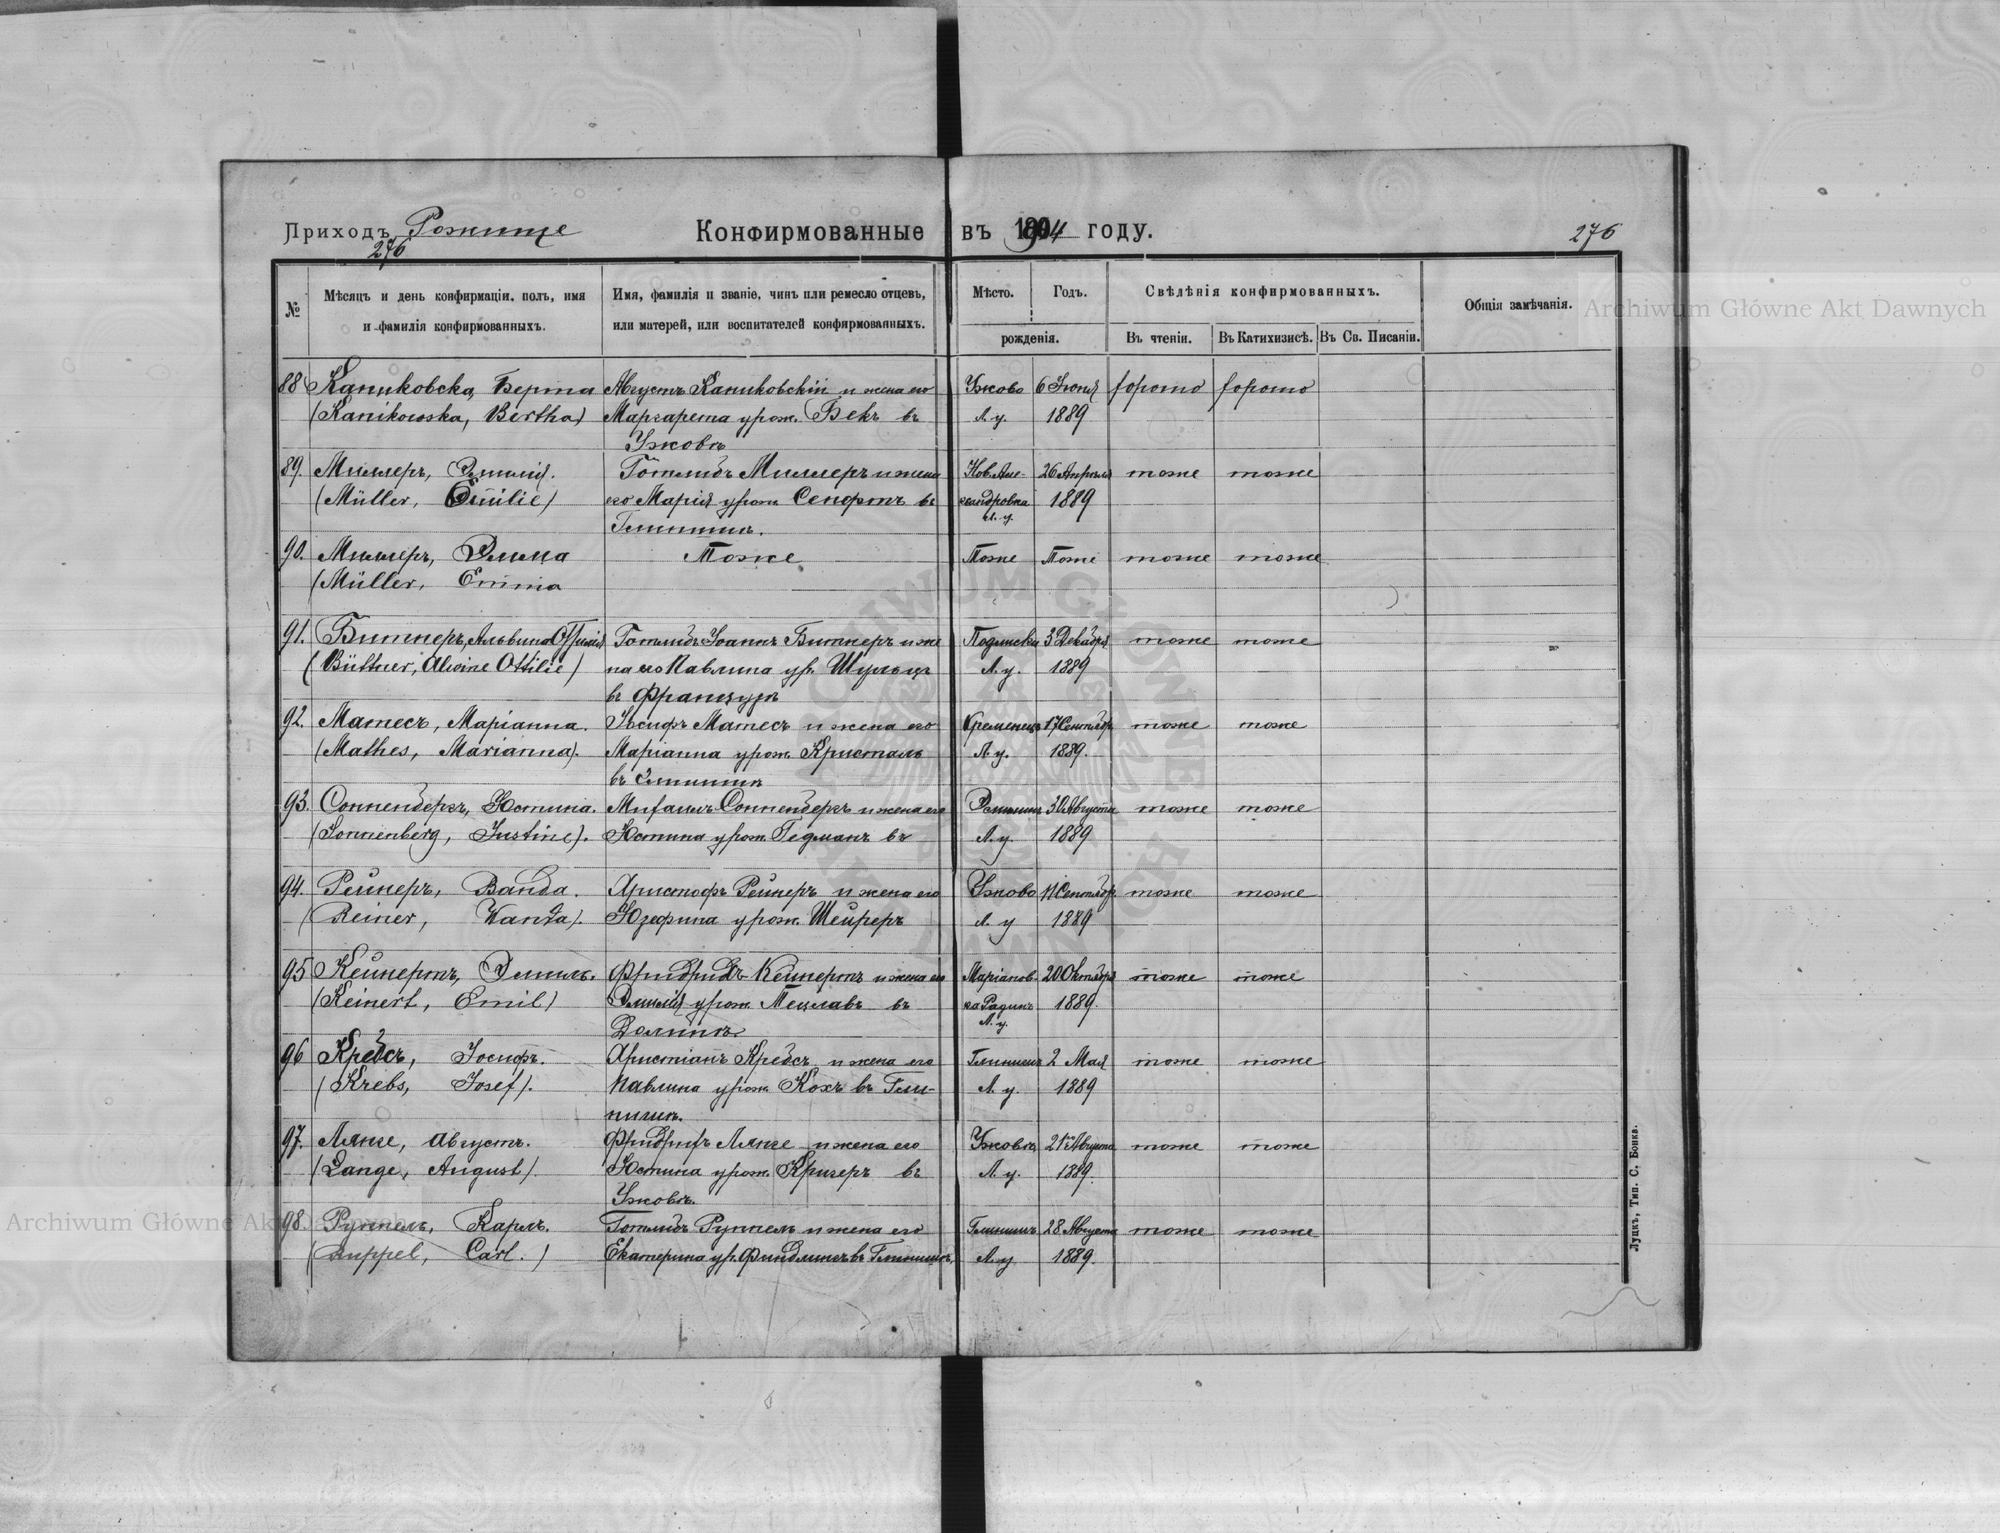 Приходъ Рожище Конфирмованные въ 1904 году. 276
276
№ Мѣсяцъ и день конфирмаціи, полъ, имя и фамилія конфирмованныхъ.
Имя, фамилія и званіе, чинъ или ремесло отцевъ, или матерей, или воспитателей конфирмованныхъ.
Мѣсто. Годъ. рожденія.
Свѣдѣнія конфирмованныхъ.
Въ чтеніи. Въ Катихизисѣ. Въ Св. Писаніи.
Общія замѣчанія.
Archiwum Główne Akt Dawnych
88 Каниковска, Берта Августъ Каниковскій и жена его Ужово 6 Іюня хорошо хорошо
(Kanikowska, Bertha) Маргарета урож. Бекъ въ Л. у. 1889
Ужовѣ
89. Миллеръ, Эмилія. Готлибъ Миллеръ и жена Нов. Але- 26 Апрѣля тоже тоже
(Müller, Emilie) его Марія урож. Сенфтъ въ ксандровка 1889
Глинищѣ. Л. у.
90. Миллеръ, Эмма Тоже Тоже Тоже тоже тоже
(Müller, Emma
91. Битнеръ, Альвина Оттилія Готлибъ Іоаннъ Битнеръ и же 3 Декабря тоже тоже
(Büttner, Alwine Ottilie) на его Павлина ур. Шульцъ Л. у. 1889
въ
92. Матесъ, Маріанна. Іосифъ Матесъ и жена его Кременецъ 17 Сентябр. тоже тоже
(Mathes, Marianna). Маріанна урож. Кристаль Л. у. 1889.
въ
93. Сонненбергъ, Юстина. Михаилъ Сонненбергъ и жена его 30 Августа тоже тоже
(Sonnenberg, Justine). Юстина урож. Гедманъ въ Л. у. 1889
94. Рейнеръ, Ванда. Христофъ Рейнеръ и жена его Ужово 11 Сентябр. тоже тоже
(Reiner, Wanda). Юзефина урож. Шейреръ Л. у 1889
95 Кейнертъ, Эмиль. Фридрихъ Кейнертъ и жена его Маріанов- 20 Октября тоже тоже
(Keinert, Emil) Эмилія урож. Тецлавъ въ ка 1889.
Долинѣ Л. у.
96 Кребсъ, Іосифъ. Христіанъ Кребсъ и жена его Глинищѣ 2 Мая тоже тоже
(Krebs, Josef). Павлина урож. Кохъ въ Гли- Л. у. 1889
нищѣ.
97. Лянге, Августъ. Фридрихъ Лянге и жена его Ужовѣ 21 Августа тоже тоже
(Lange, August). Юстина урож. Кригеръ въ Л. у. 1889.
Ужовѣ.
Archiwum Główne Akt Dawnych
98. Руппель, Карлъ. Готлибъ Руппель и жена его Глинищѣ 28 Августа тоже тоже
(Ruppel, Carl.) Екатерина ур. Финдлингъ въ Глинищѣ. Л. у 1889.
Луцкъ, Тип. С. Бонка.
ARCHIWUM GŁÓWNE AKT DAWNYCH